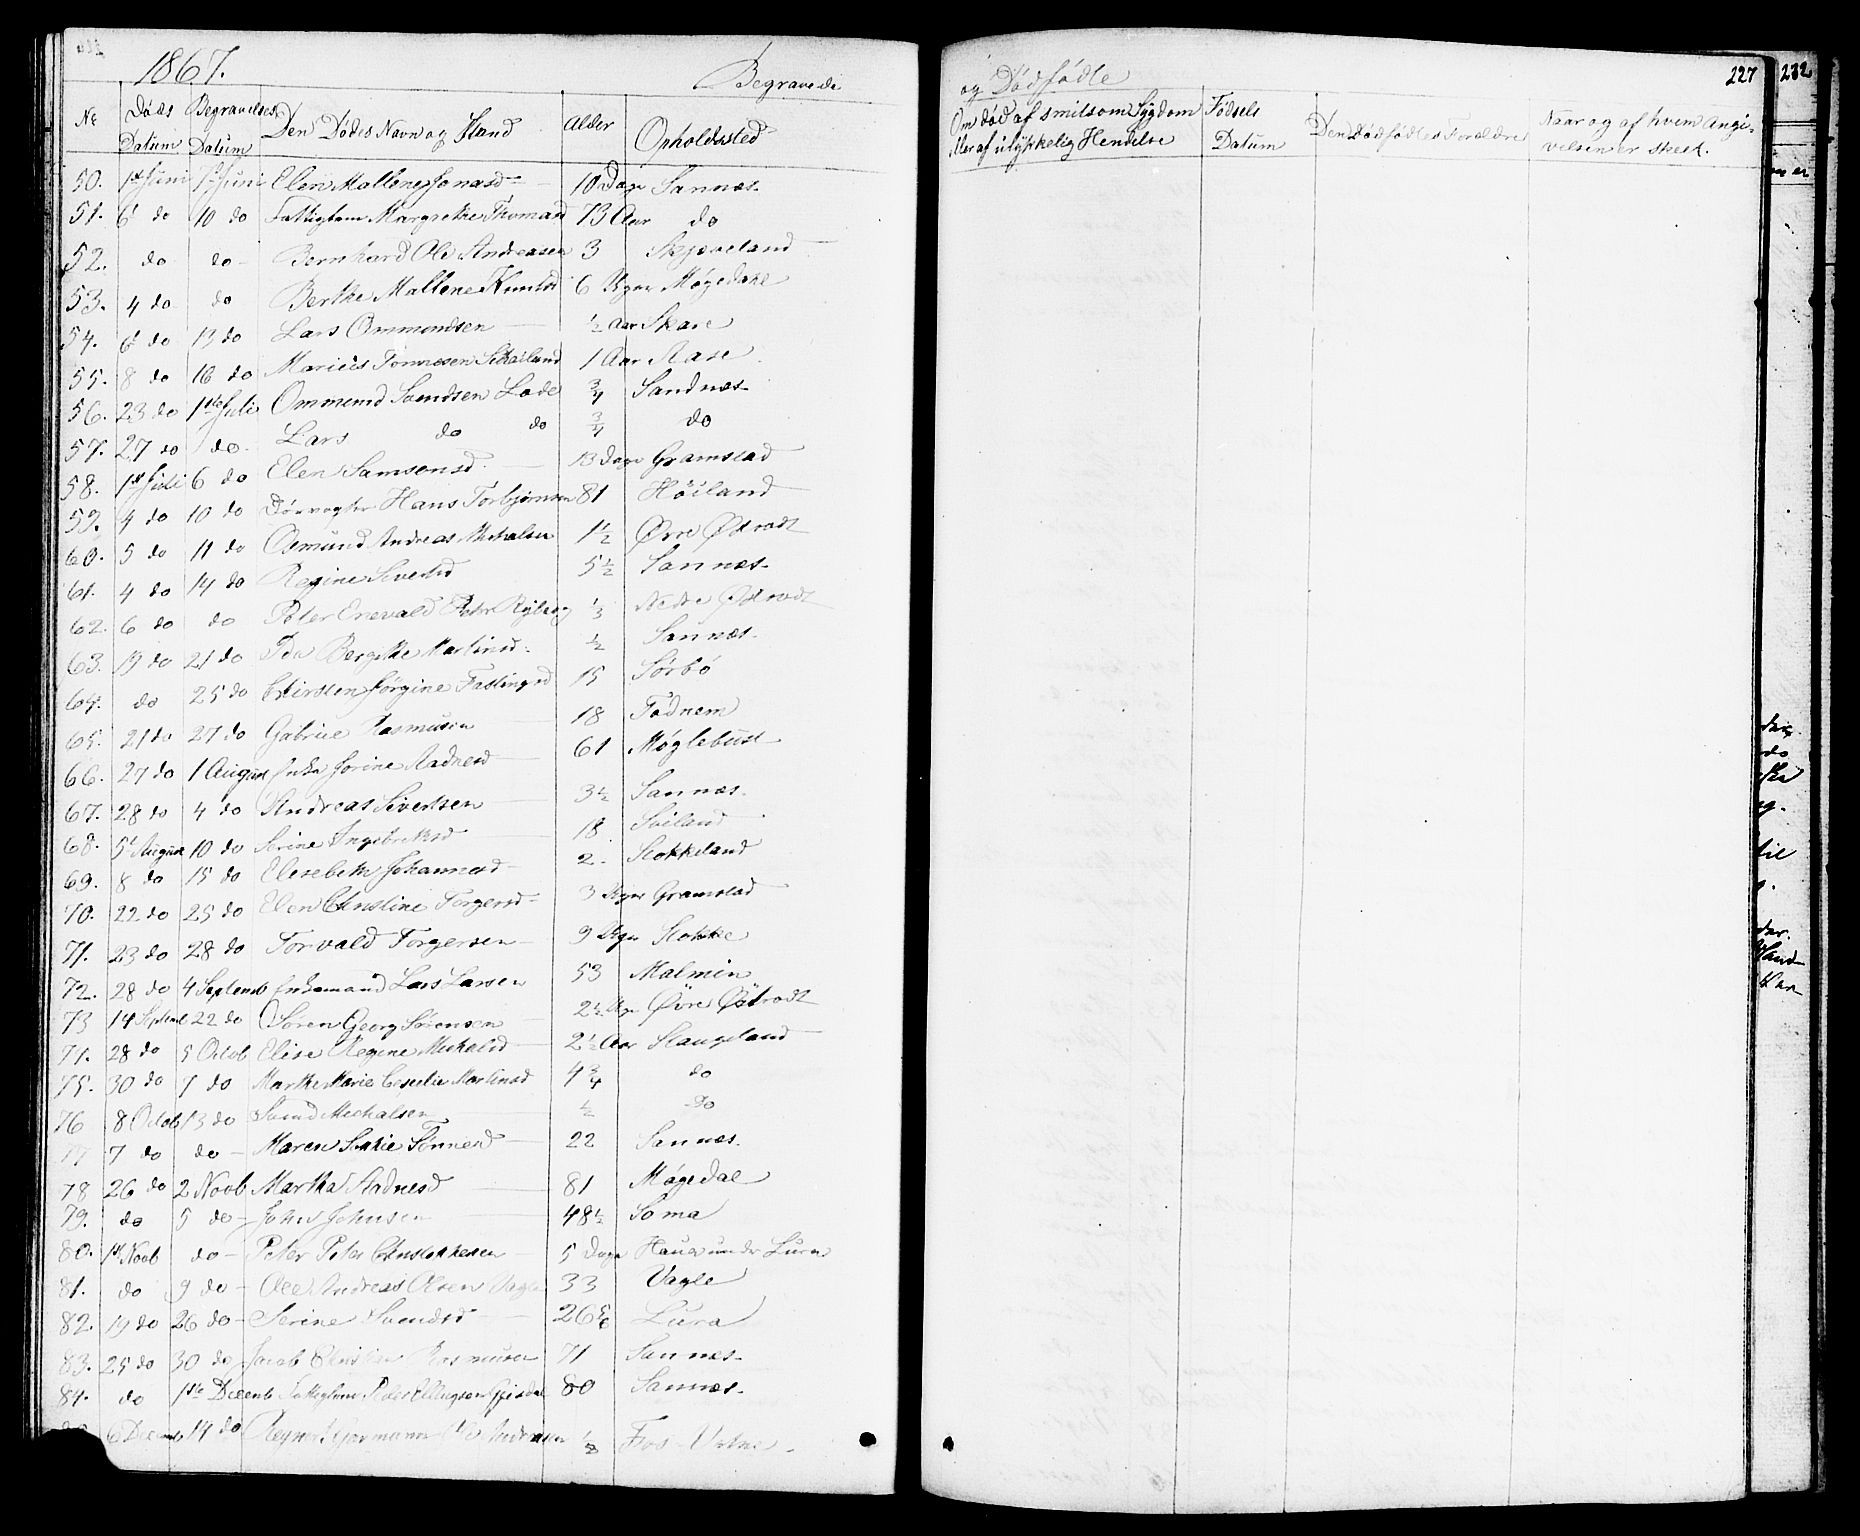 1867. Begravede
og Dødfødte 227 232
No Døds Datum Begravelses Datum Den Dødes Navn og Stand Alder Opholdssted
Om død af smitsom Sygdom eller af ulykkelig Hendelse Fødsels Datum Den Dødfødtes Forældre Naar og af hvem Angivelsen er skeet.
50. 1st Juni 1st Juni Elen Mallene Jonasd 10 Dage Sannæs
51. 6 do 10 do Fattiglem Margrethe Thomasd 73 Aar do
52. do do Bernhard Ole Andreasen 3 Skjæveland
53. 4 do do Berthe Mallene Knudsd 6 Uger Møgedahl
54. 6 do 13 do Lars Ommundsen ½ Aar Skare
55. 8 do 16 do Marius Tønnesen 1 Aar Aase
56. 23 do 1ste Juli Ommund Svendsen Lode ¾ Sandnæs
57. 27 do do Lars do do ¾ do
58. 1st Juli 6 do Elen Samsonsd 13 Dage Gramstad
59. 4 do 10 do Hans Torbjørnsen 81 Høiland
60. 5 do 11 do Osmund Andreas Michalsen 1½ Øvre Østradt
61. 4 do 14 do Regine Sivertsd 5½ Sannæs
62. 6 do do Peter Enevald Peter ⅓ Nedre Østradt
63. 19 do 21 do Ida Bergithe Martinsd ½ Sannæs.
64. do 25 do Kirsten Jørgine Fastingsd 15 Sørbø
65. 21 do 27 do Gabriel Rasmusen 18 Fodnem
66. 27 do 1 August Enke Jorine Aadnesd 61 Møglebust
67. 28 do 4 do Andreas Sivertsen 3½ Sannæs.
68. 5 August 10 do Serine Ingebretsd 18 Soiland
69. 8 do 15 do Elisebeth Johannesd 2 Stokkeland
70. 22 do 25 do Elen Christine Torgersd 3 Uger Gramstad
71. 23 do 28 do Torvald Torgersen 9 Uger Stokke
72. 28 do 4 Septemb Enkemand Lars Larsen 53 Malmin
73 14 Septemb 22 do Søren Georg Sørensen 2½ Uger Øvre Østradt
74. 28 do 5 Octob Elise Regine Michalsd 2½ Aar Stangeland
75. 30 do 7 do Marthe Marie Cecelie Martinsd 4¾ do
76 8 Octob 13 do Svend Michalsen ½ do
77 7 do do Maren Sophie Tønnesd 22 Sannæs.
78 26 do 2 Novb Martha Aadnesd 81 Møgedal
79. do 5 do John Johnsen 48½ Soma
80. 1st Novb do Peter Peter Christophersen 5 Dage Hana under Lura
81. do 9 do Ole Andreas Olsen Vagle 33 Vagle
82. 19 do 26 do Serine Svendsd 26 Lura
83. 25 do 30 do Jacob Christian Rasmusen 71 Sannæs
84. do 1ste Decemb Fattiglem Peder Ellingsen Gjesdal 80 Sannæs.
6 Decemb 14 do Andreasen ½ Fos-Vatne